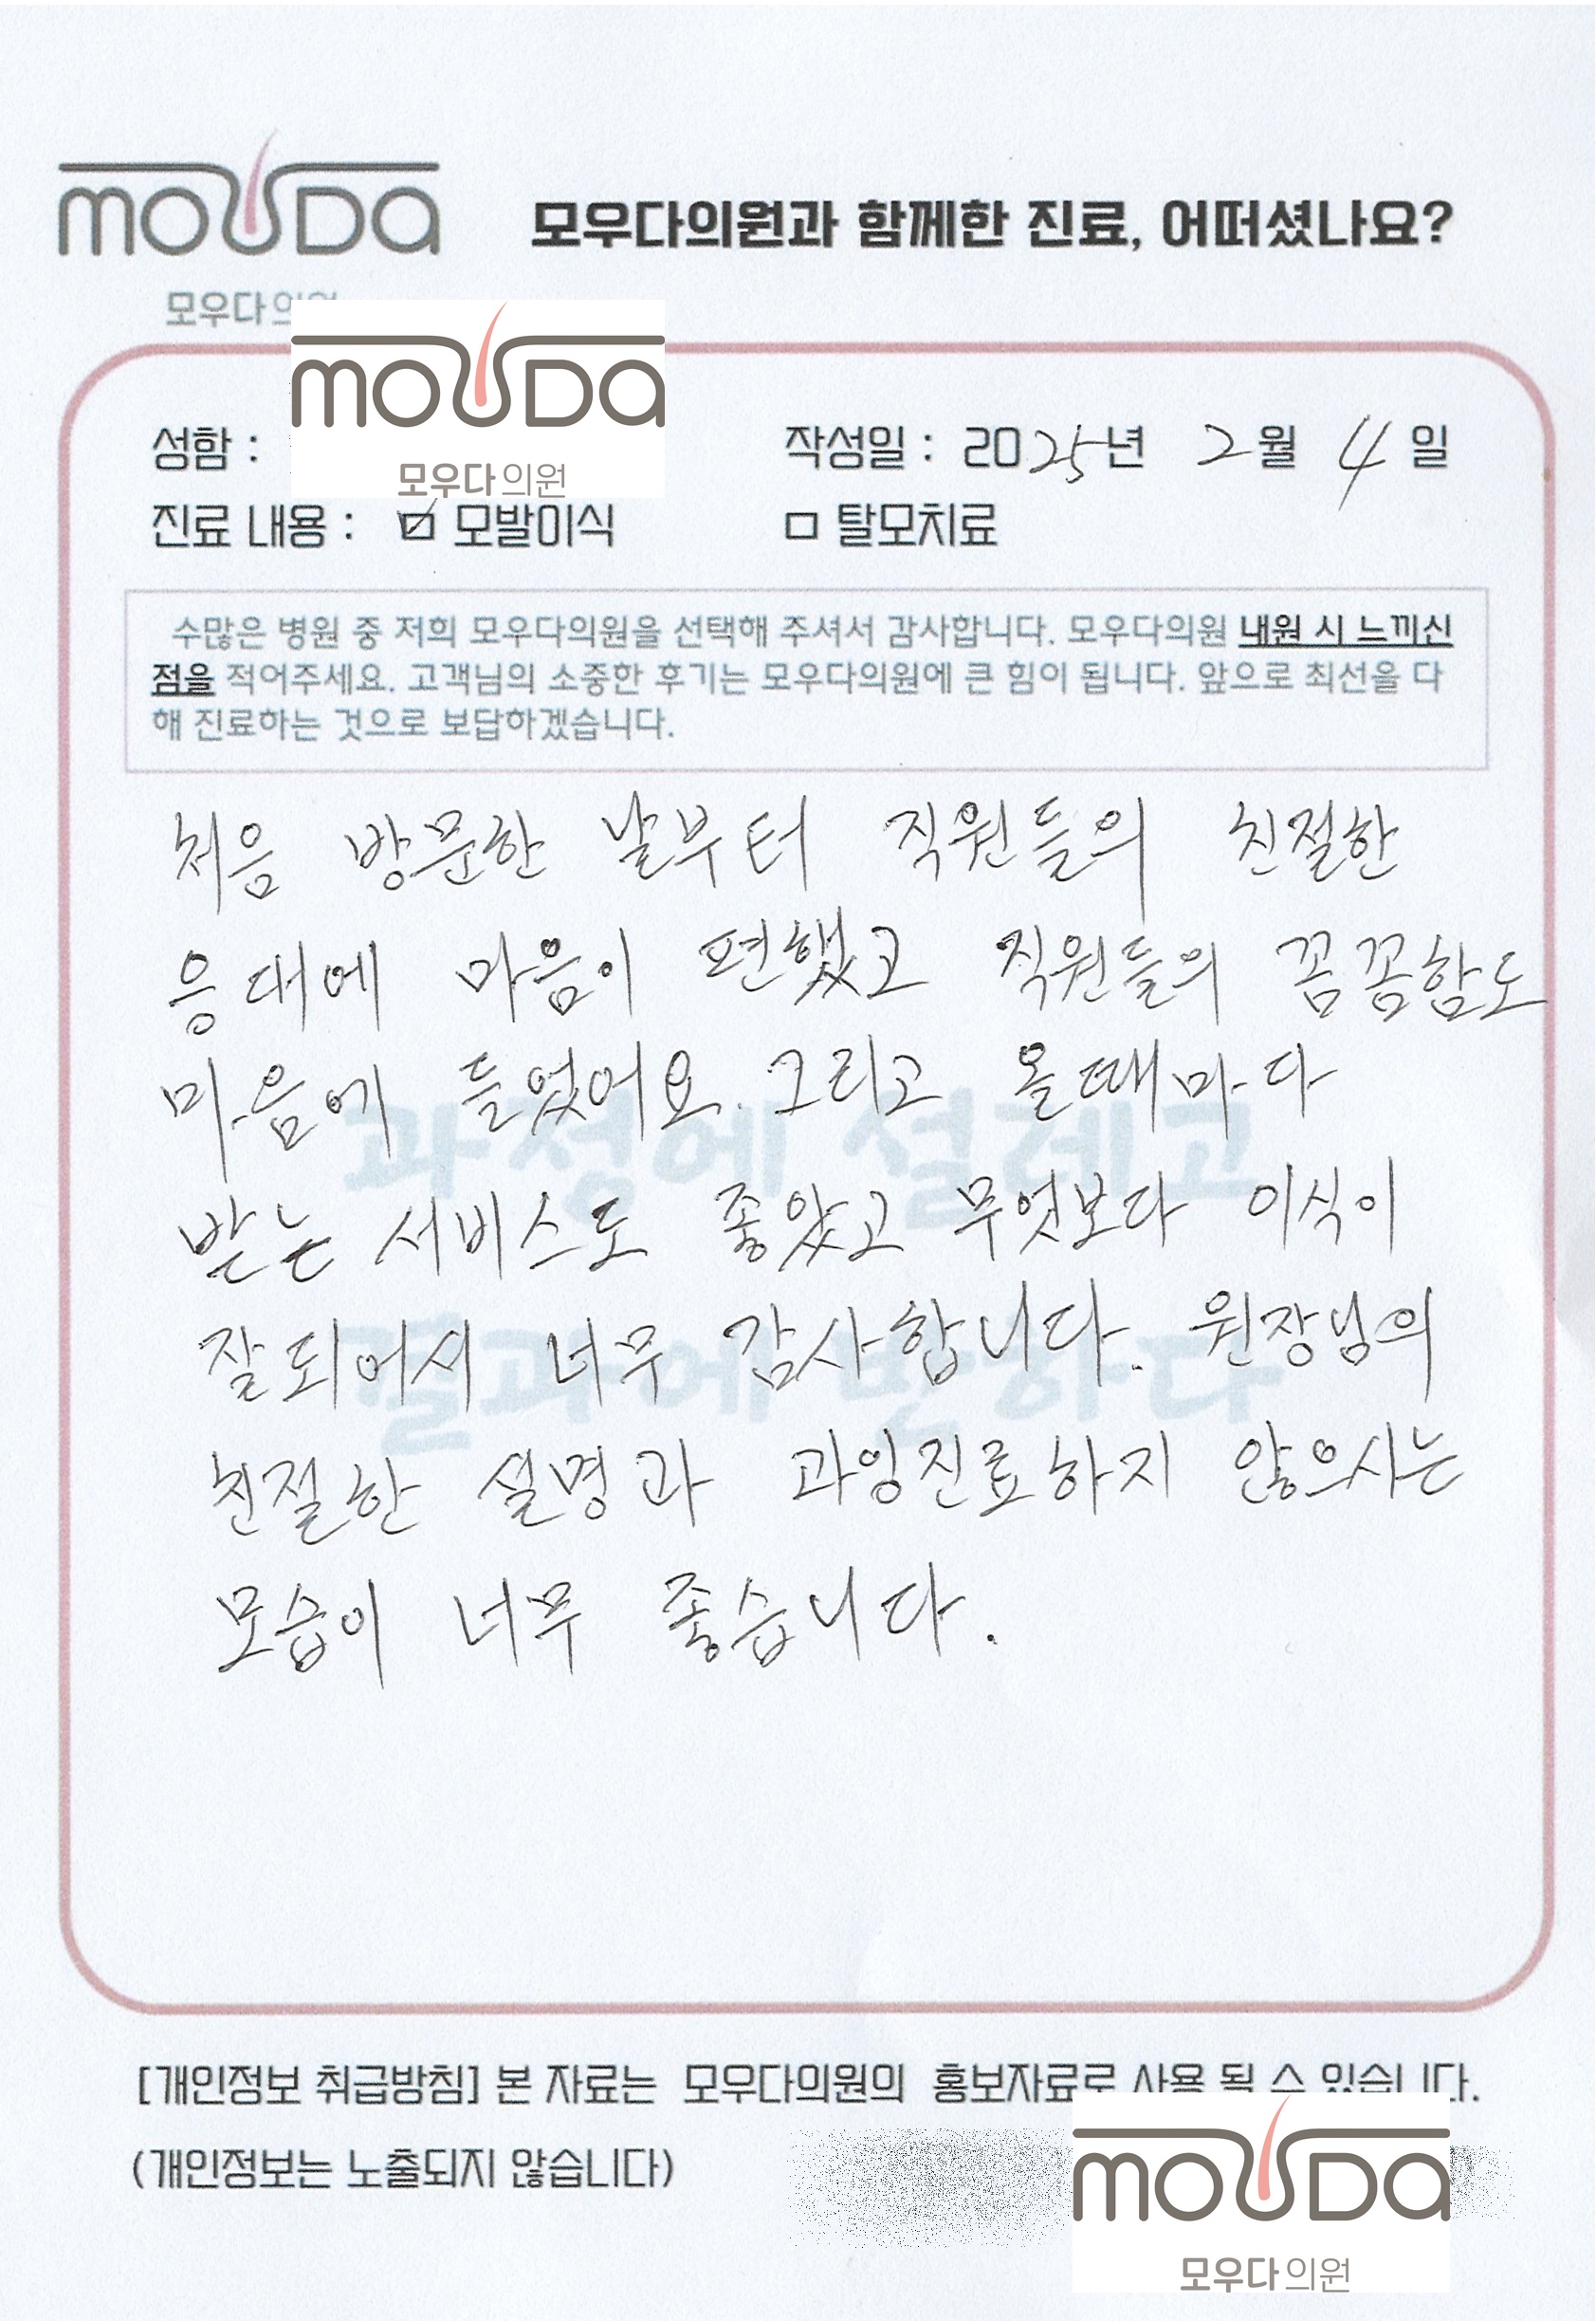 mouda
모우다의원과 함께한 진료, 어떠셨나요?
모우다의원
mouda
모우다의원
성함 :
작성일 : 2025년 2월 4일
진료 내용 : ☑ 모발이식 □ 탈모치료
수많은 병원 중 저희 모우다의원을 선택해 주셔서 감사합니다. 모우다의원 내원 시 느끼신
점을 적어주세요. 고객님의 소중한 후기는 모우다의원에 큰 힘이 됩니다. 앞으로 최선을 다
해 진료하는 것으로 보답하겠습니다.
처음 방문한 날부터 직원들의 친절한
응대에 마음이 편했고 직원들의 꼼꼼함도
마음에 들었어요. 그리고 올때마다
받는 서비스도 좋았고 무엇보다 이식이
잘되어서 너무 감사합니다. 원장님의
친절한 설명과 과잉진료하지 않으시는
모습이 너무 좋습니다.
과정에 설레고
결과에 반하다
[개인정보 취급방침] 본 자료는 모우다의원의 홍보자료로 사용 될 수 있습니다.
(개인정보는 노출되지 않습니다)
mouda
모우다의원